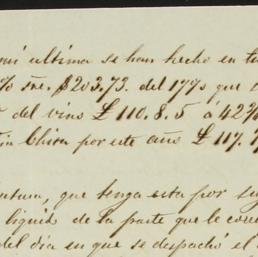 mi ultima se han hecho en
% sre. $203.73. del 17% que
del vino £ 110.8.5 á 42%
Chira por este año £ 117.
que tenga esta por
liquido de la parte que le
del dia en que se despachó el